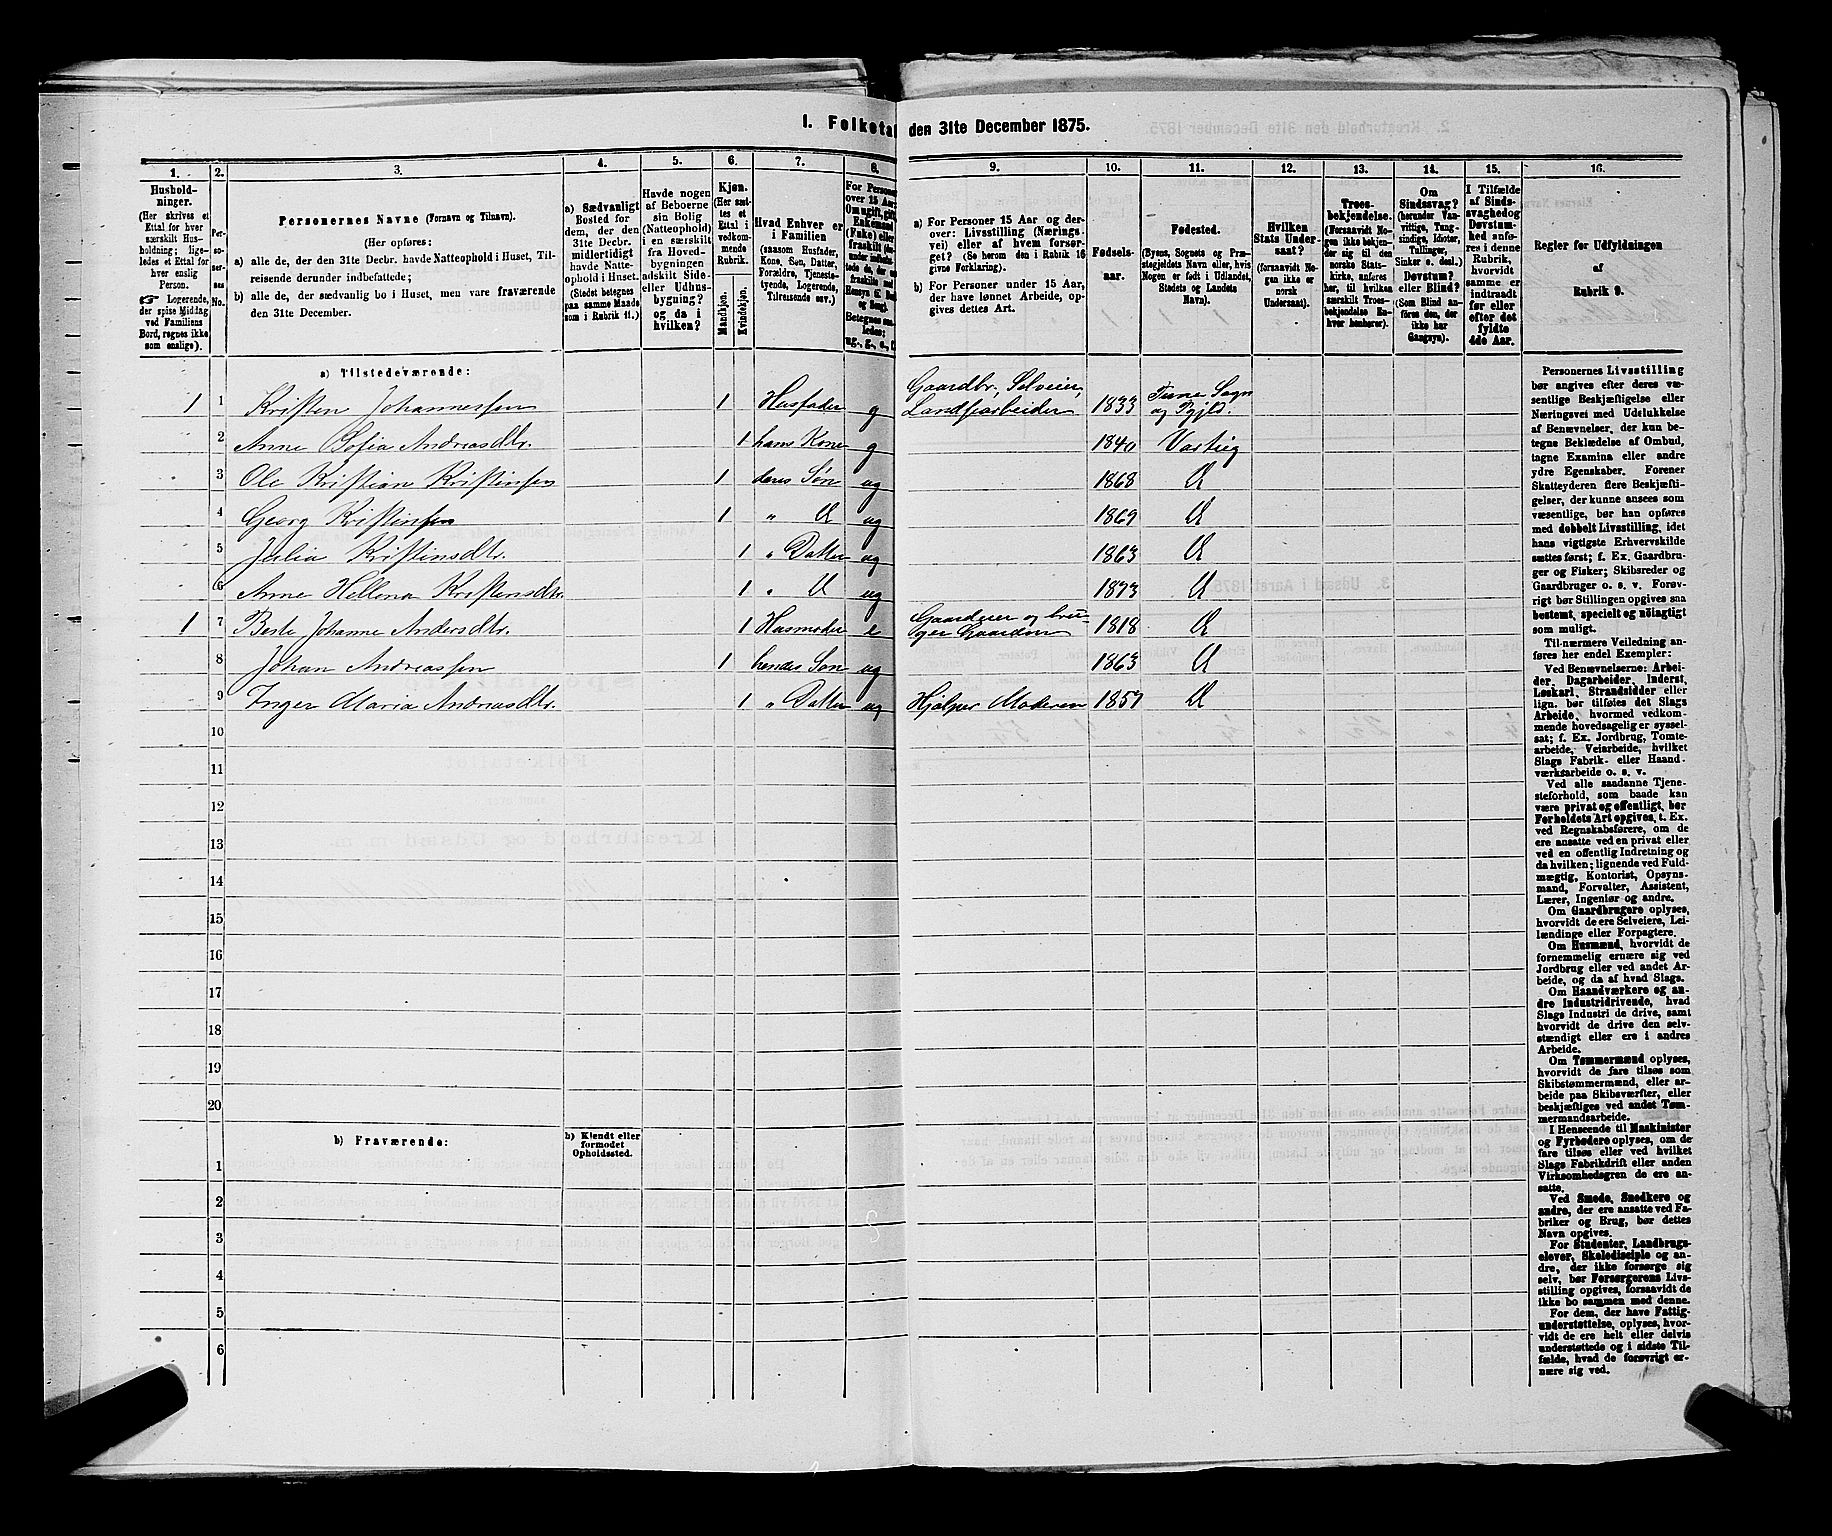 1. Folketal den 31te December 1875.
1.
Hushold-
ninger.
(Her skrives et
Ettal for hver
særskilt Hus-
holdning; lige-
ledes et Ettal for
hver enslig
Person.
☞ Logerende,
der spise Middag
ved Familiens
Bord, regnes ikke
som enslige).
2.
Per-
so-
ner-
nes
No.
3.
Personernes Navne (Fornavn og Tilnavn).
(Her opføres:
a) alle de, der den 31te Decbr. havde Natteophold i Huset, Til-
reisende derunder indbefattede;
b) alle de, der sædvanlig bo i Huset, men vare fraværende
den 31te December.
4.
a) Sædvanligt
Bosted for
dem, der den
31te Decbr.
midlertidigt
havde Natte-
ophold i Huset.
(Stedet betegnes
paa samme Maade
som i Rubrik 11.)
5.
Havde nogen
af Beboerne
sin Bolig
(Natteophold)
i en særskilt
fra Hoved-
bygningen
adskilt Side-
eller Udhus-
bygning?
og da i
hvilken?
6.
Kjøn.
(Her sæt-
tes et
Ettal i
vedkom-
mende
Rubrik.
Mandkjøn.
Kvindekjøn.
7.
Hvad Enhver er
i Familien
(saasom Husfader,
Kone, Søn, Datter,
Forældre, Tjeneste-
tyende, Logerende,
Tilreisende osv.)
8.
For Personer
over 15 Aar:
Om ugift, gift,
Enkemand
(Enke) eller
fraskilt
9.
a) For Personer 15 Aar og der-
over: Livsstilling (Nærings-
vei) eller af hvem forsør-
get? (Se herom den i Rubrik 16
givne Forklaring).
b) For Personer under 15 Aar,
der have lønnet Arbeide, op-
gives dettes Art.
10.
Fødsels-
aar.
11.
Fødested.
(Byens, Sognets og Præ-
stegjeldets Navn eller, hvis
Nogen er født i Udlandet,
Stedets og Landets
Navn).
12.
Hvilken
Stats Under-
saat?
(forsaavidt No-
gen ikke er
norsk
Undersaat).
13.
Troes-
bekjendelse.
(Forsaavidt No-
gen ikke bekjen-
der sig til den
norske Stats-
kirke, anføres
her, til hvilken
særskilt Troes-
bekjendelse En-
hver henhører).
14.
Om
Sindssvag?
(herunder Van-
vittige, Tung-
sindige, Idioter,
Tullinger,
Sinker o. desl.)
Døvstum?
eller Blind?
(Som Blind an-
føres den, der
ikke har
Gangsyn).
15.
I Tilfælde
af Sinds-
svaghed og
Døvstum-
hed anfø-
res i denne
Rubrik,
hvorvidt
samme er
indtraadt
før eller
efter det
fyldte
4de Aar.
16.
Regler for Udfyldningen
af
Rubrik 9.
a) Tilstedeværende:
1 1 Kristen Johannessen 1 Husfader g Gaardbr. Selveier, Landfiarbeider 1833 Tune Sogn og Pgjld.
2 Anne Sofia Andreasdtr. 1 hans Kone g 1840 Varteig
3 Ole Kristian Kristensen 1 deres Søn ug 1868 d
4 Georg Kristinsen 1 " d ug 1869 d
5 Julia Kristinsdtr. 1 " Datter ug 1863 d
6 Anne Hellena Kristensdtr. 1 " d ug 1873 d
1 7 Berte Johanne Andersdtr. 1 Husmoder e Gaardeier og bru- ger Gaarden 1818 d
8 Johan Andreassen 1 hendes Søn ug 1863 d
9 Inger Maria Andreasdtr. 1 " Datter ug Hjælper Moderen 1857 d
10
11
12
13
14
15
16
17
18
19
20
b) Fraværende:
b) Kjendt eller
formodet
Opholdssted.
1
2
3
4
5
6
Personernes Livsstilling
bør angives efter deres væ-
sentlige Beskjæftigelse eller
Næringsvei med Udelukkelse
af Benævnelser, der kun be-
tegne Beklædelse af Ombud,
tagne Examina eller andre
ydre Egenskaber. Forener
Skatteyderen flere Beskjæfti-
gelser, der kunne ansees som
væsentlige, bør han opføres
med dobbelt Livsstilling, idet
hans vigtigste Erhvervskilde
sættes først; f. Ex. Gaardbru-
ger og Fisker; Skibsreder og
Gaardbruger o. s. v. Forøv-
rigt bør Stillingen opgives saa
bestemt, specielt og nöiagtigt
som muligt.
Til nærmere Veiledning an-
føres her endel Exempler:
Ved Benævnelserne: Arbei-
der, Dagarbeider, Inderst,
Løskarl, Strandsidder eller
lign. bør tilføies det Slags
Arbeide, hvormed vedkom-
mende hovedsagelig er syssel-
sat; f. Ex. Jordbrug, Tomte-
arbeide, Veiarbeide, hvilket
Slags Fabrik- eller Haand-
værksarbeide o. s. v.
Ved alle saadanne Tjene-
steforhold, som baade kan
være privat og offentligt, bør
Forholdets Art opgives, t. Ex.
ved Regnskabsførere, om de
ere ansatte ved en privat eller
ved en offentlig Indretning og
da hvilken; lignende ved Fuld-
mægtig, Kontorist, Opsyns-
mand, Forvalter, Assistent,
Lærer, Ingeniør og andre.
Om Gaardbrugere oplyses,
hvorvidt de ere Selveiere, Lei-
lændinge eller Forpagtere.
Om Husmænd, hvorvidt de
fornemmelig ernære sig ved
Jordbrug eller ved andet Ar-
beide, og da af hvad Slags.
Om Haandværkere og an-
dre Industridrivende, hvad
Slags Industri de drive, samt
hvorvidt de drive den selv-
stændigt eller ere i andres
Arbeide.
Om Tømmermænd oplyses,
hvorvidt de fare tilsøs som
Skibstømmermænd, eller ar-
beide paa Skibsværfter, eller
beskjæftiges ved andet Tøm-
mermandsarbeide.
I Henseende til Maskinister
og Fyrbødere oplyses, om de
fare tilsøs eller ved hvilket
Slags Fabrikdrift eller anden
Virksomhedsgren de ere an-
satte.
Ved Smede, Snedkere og
andre, der ere ansatte ved Fa-
briker og Brug, bør dettes
Navn opgives.
For Studenter, Landbrugs-
elever, Skoledisciple og an-
dre, der ikke forsørge sig
selv, bør Forsørgerens Livs-
stilling opgives, forsaavidt de
ikke bo sammen med denne.
For dem, der have Fattig-
understøttelse, oplyses, hvor-
vidt de ere helt eller delvis
understøttede og i sidste Til-
fælde, hvad de forøvrigt er-
nære sig ved.